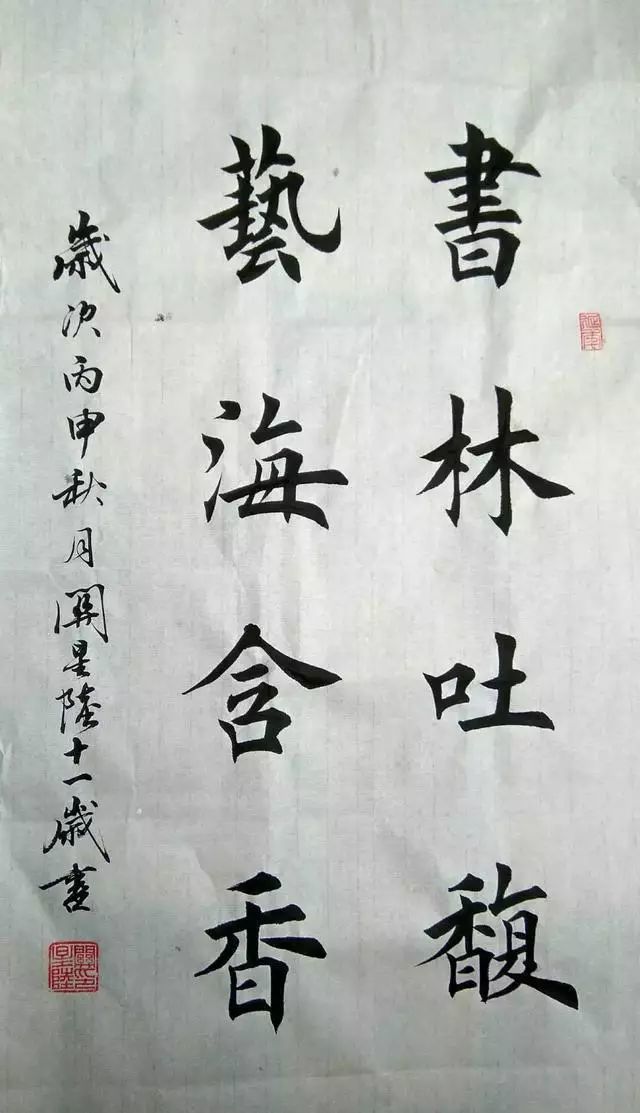 書林吐馥
藝海含香
歲次丙申秋月關星陸十一歲書